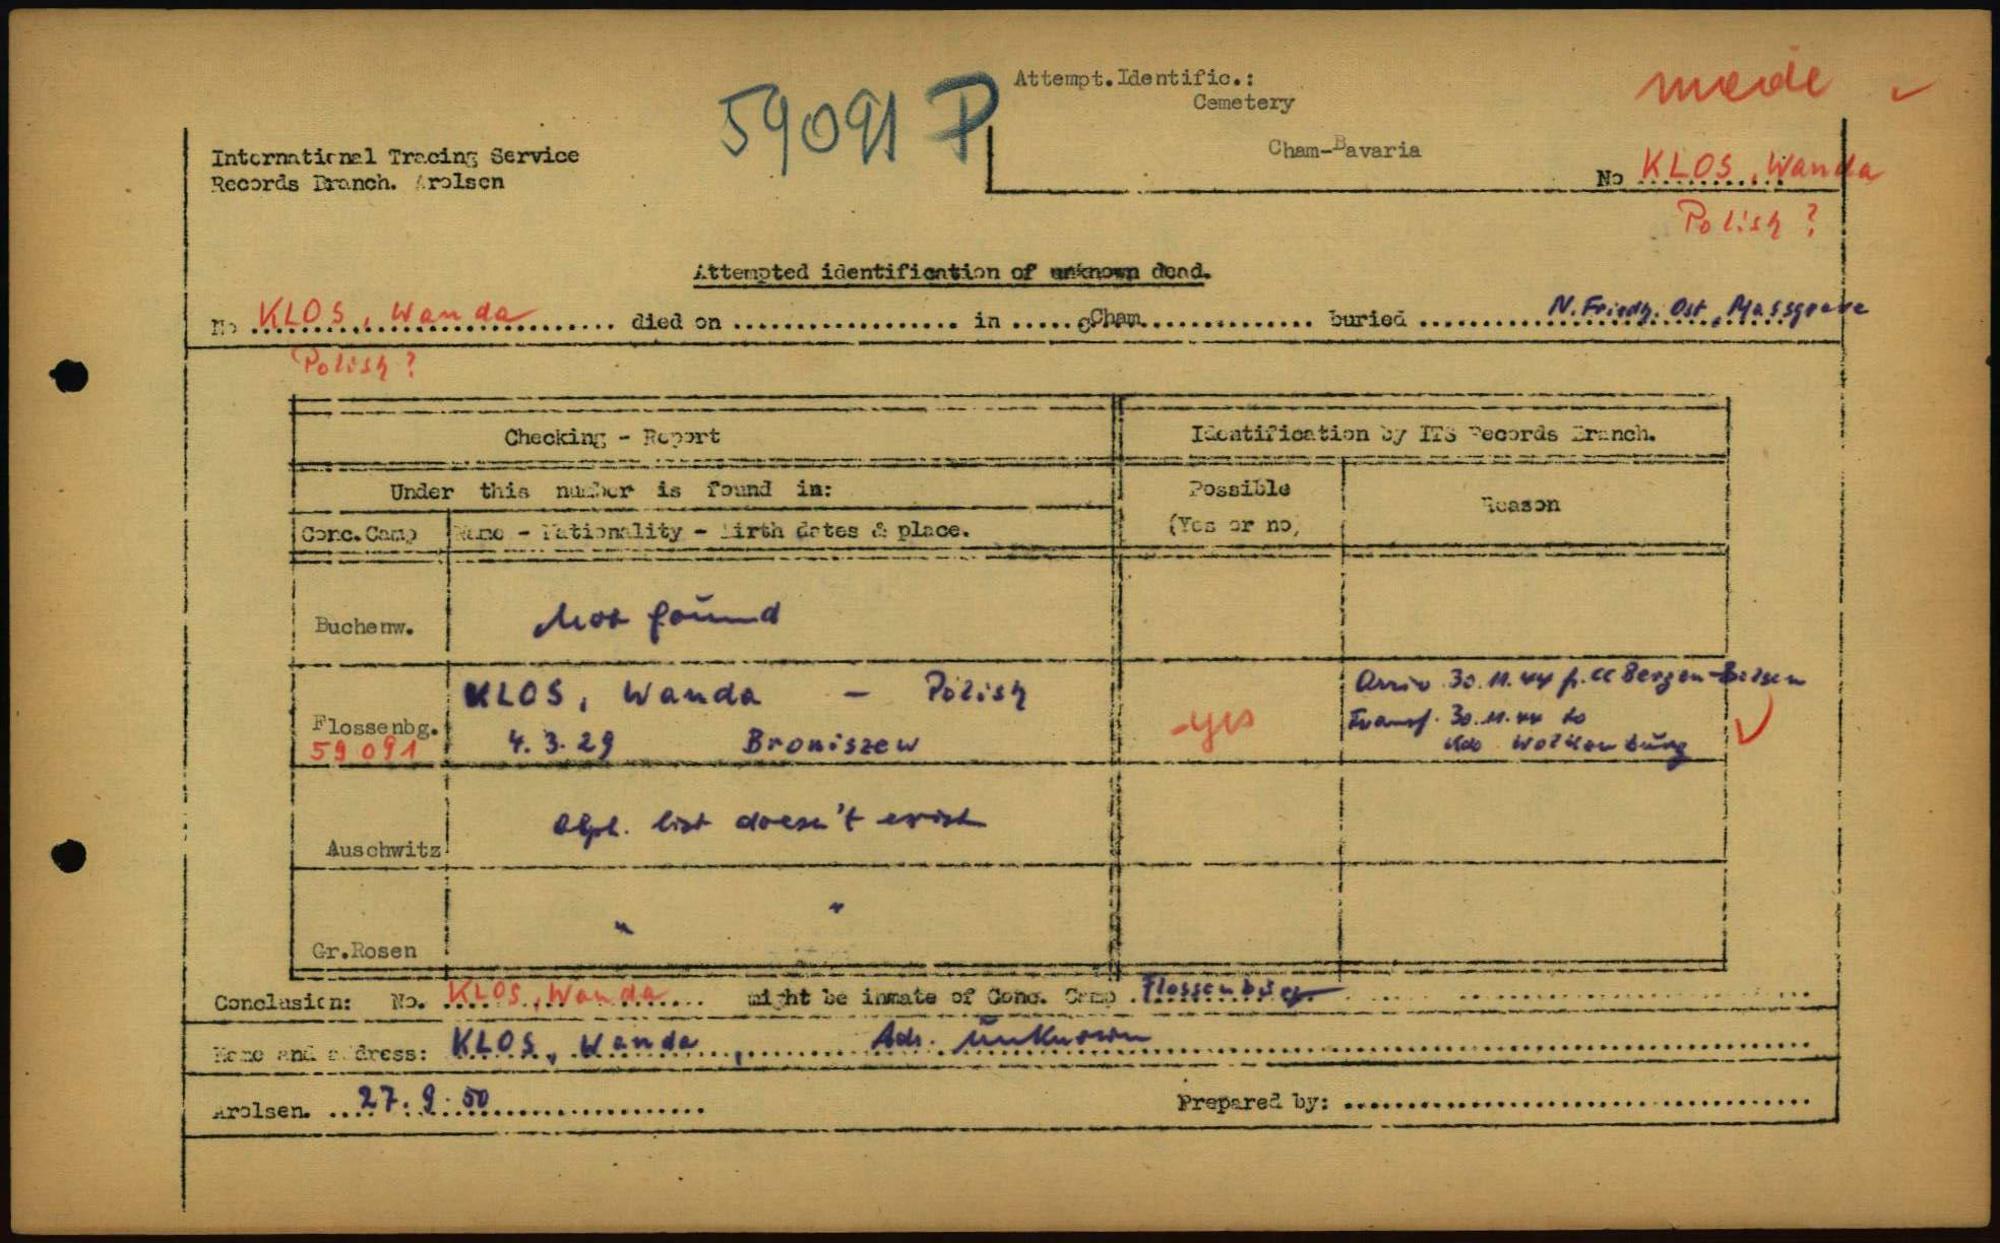 59091 P
Attempt.Identific.:
Cemetery
Cham-Bavaria
made
International Tracing Service
Records Branch. Arolsen
No KLOS, Wanda
Polish ?
Attempted identification of unknown dead.
No KLOS, Wanda died on ........ in Cham buried N. Friedh. Ost, Massgrave
Polish ?
Checking - Report
Identification by ITS Records Branch.
Under this number is found in:
Possible
(Yes or no)
Reason
Conc.Camp
Name - Nationality - Birth dates & place.
Buchenw.
Not found
Flossenbg.
59091
KLOS, Wanda - Polish
4.3.29 Broniszew
yes
Arriv. 30.11.44 f. CC Bergen-Belsen
Transf. 30.11.44 to
Kdo Wolkenburg
Auschwitz
Alph. list doesn't exist
Gr.Rosen
" "
Conclusion: No. KLOS, Wanda might be inmate of Conc. Camp Flossenbürg
Name and address: KLOS, Wanda, Adr. unknown
Arolsen. 27.9.50
Prepared by: